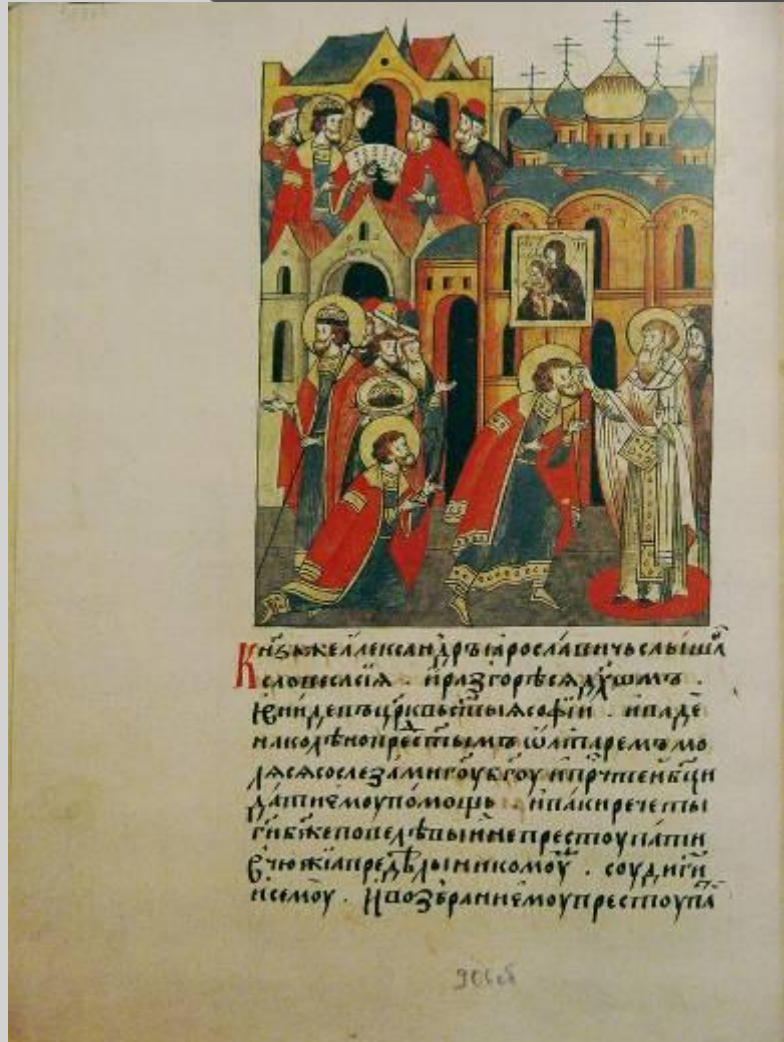 Кн҃ѕьжеалександръꙗрославичьслышⷧ
словесасиꙗ . ѝразгорѣсѧдх҃омъ .
ѝвнидевъцр҃квьст҃ыꙗсофїи . ипаде
наколѣнопрⷣест҃ымъѡлтаремъмо
лѧсѧсослезамигоу҃кбг҃оуипрⷱ҇тенбц҃и
датиемоупомощь . ипакиречеты
ги҃бж҃еповелѣвыйнепрестоупати
вчюжїапредѣлыникомоу . соудиги҃
исемоу . ѝвозбраниемоупрестоупаⷮ
906об